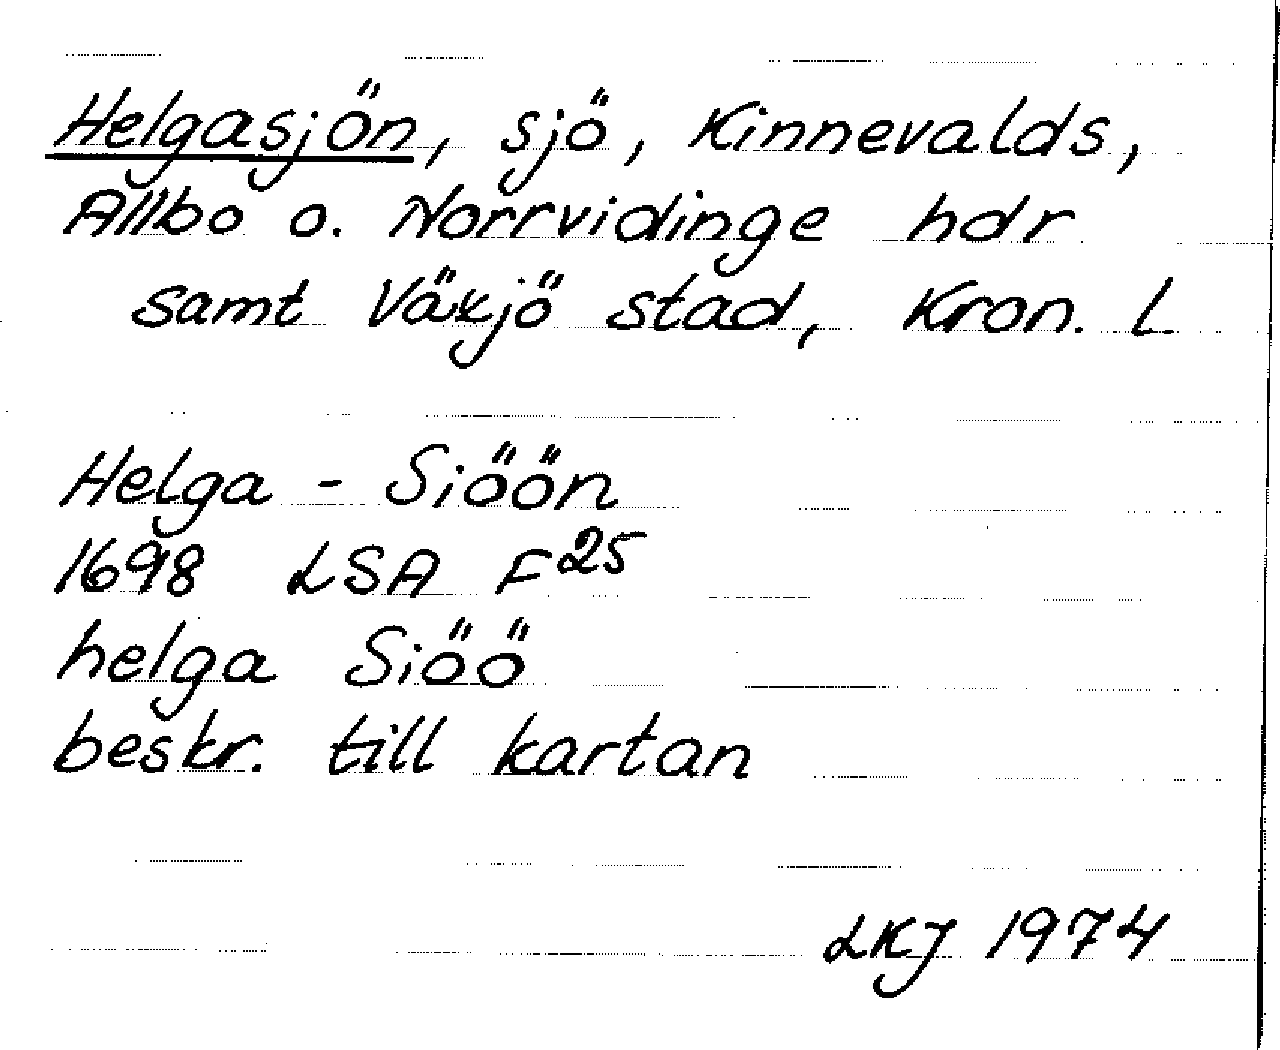 Helgasjön, sjö, Kinnevalds,
Allbo o. Norrvidinge hdr
samt Väkjö stad, Kron. L
Helga - Siöön
1698 LSA F25
helga Siöö
beskr. till kartan
LKJ 1974